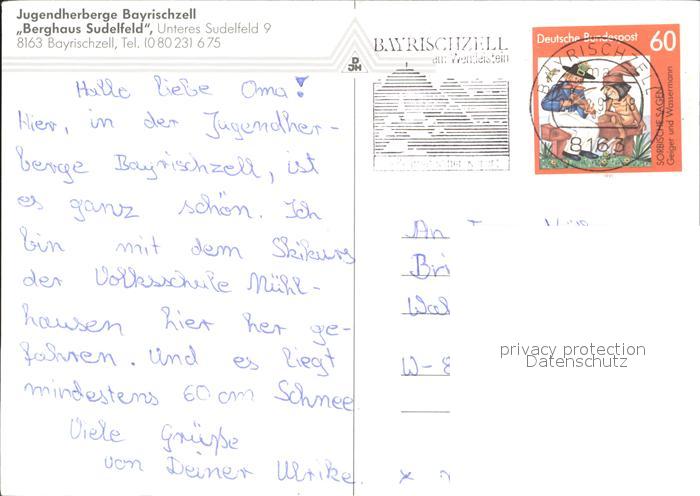 Jugendherberge Bayrischzell
„Berghaus Sudelfeld", Unteres Sudelfeld 9
8163 Bayrischzell, Tel. (0 80 23) 6 75
DJH
BAYRISCHZELL
am Wendelstein
BAYRISCHZELL
8163
Deutsche Bundespost 60
SORBISCHE SAGEN
Geiger und Wassermann
Hallo liebe Oma!
Hier, in der Jugendher-
berge Bayrischzell, ist
es ganz schön. Ich
bin mit dem Skikurs
der Volksschule Mühl-
hausen hier her ge-
fahren. Und es liegt
mindestens 60 cm Schnee
Viele Grüße
von Deiner Ulrike.
An
Bri
Wal
W-8
privacy protection
Datenschutz